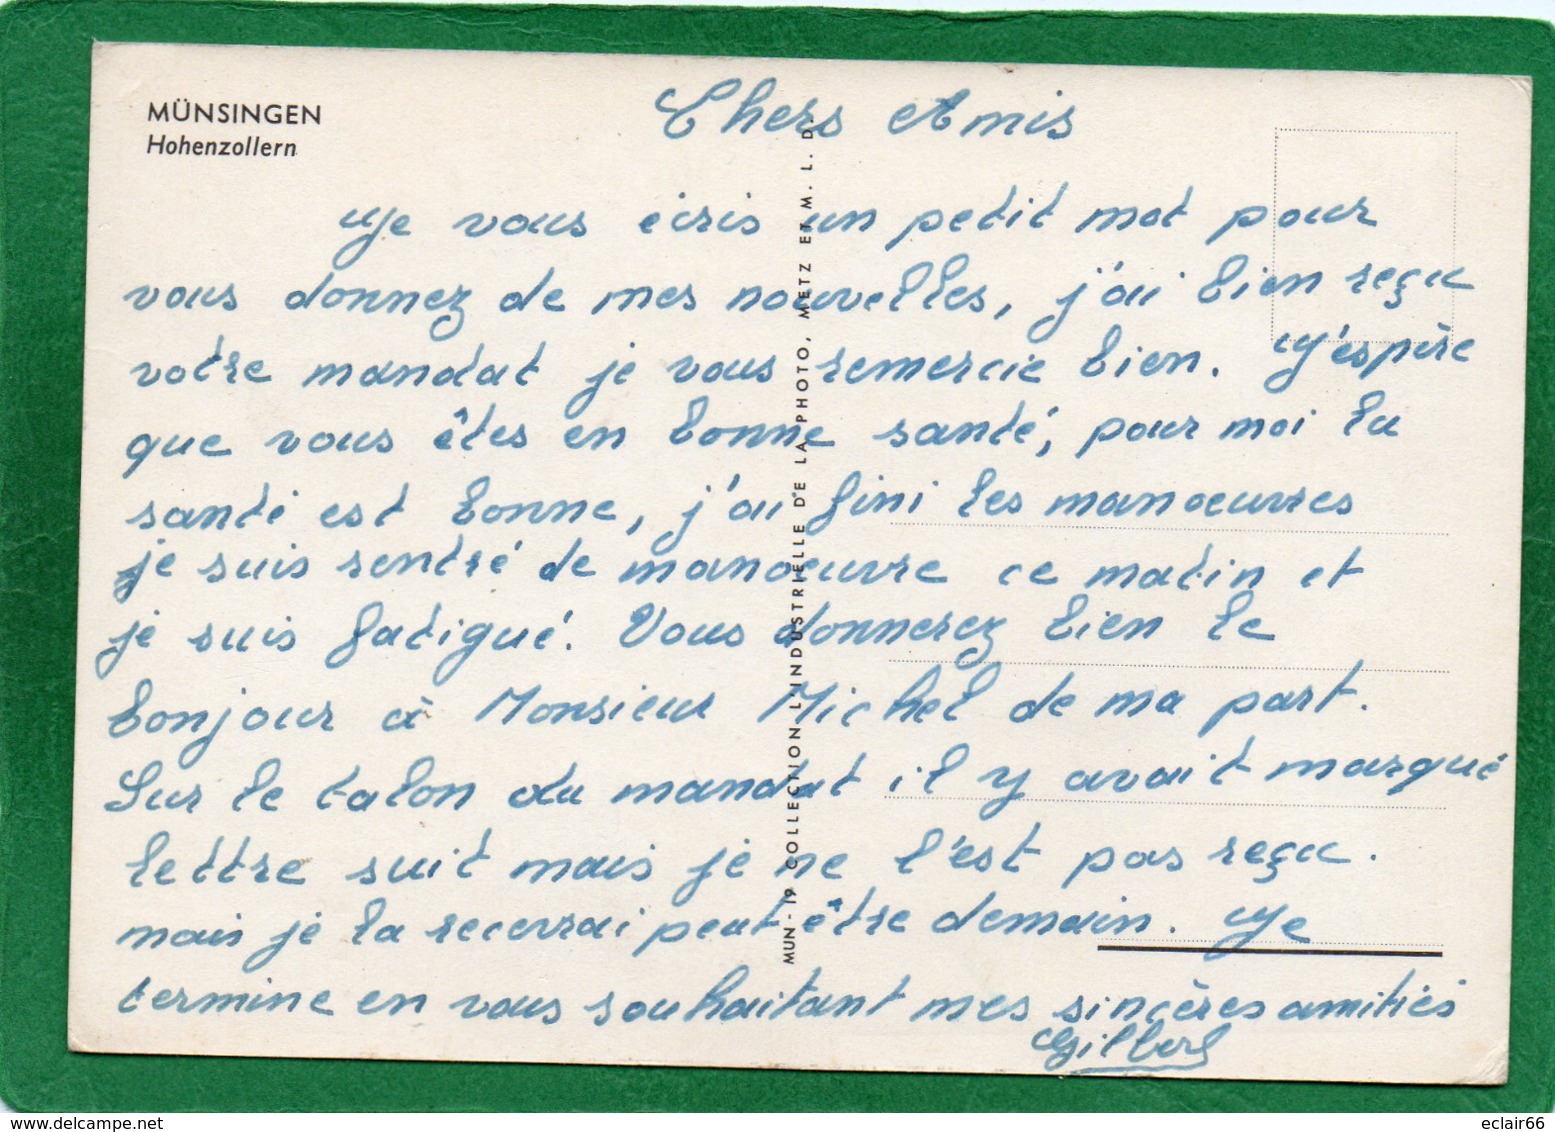 MÜNSINGEN
Hohenzollern
Chers Amis
Je vous écris un petit mot pour
vous donnez de mes nouvelles, j'ai bien reçu
votre mandat je vous remercie bien. J'espère
que vous êtes en bonne santé, pour moi la
santé est bonne, j'ai fini les manoeuvres
je suis rentré de manoeuvre ce matin et
je suis fatigué. Vous donnerez bien le
bonjour à Monsieur Michel de ma part.
Sur le talon du mandat il y avait marqué
lettre suit mais je ne l'est pas reçu.
mais je la recevrai peut être demain. Je
termine en vous souhaitant mes sincères amitiés
Gilbert
MUN - 19 COLLECTION L'INDUSTRIELLE DE LA PHOTO, METZ ET M. L. D.
delcampe.net
eclair66